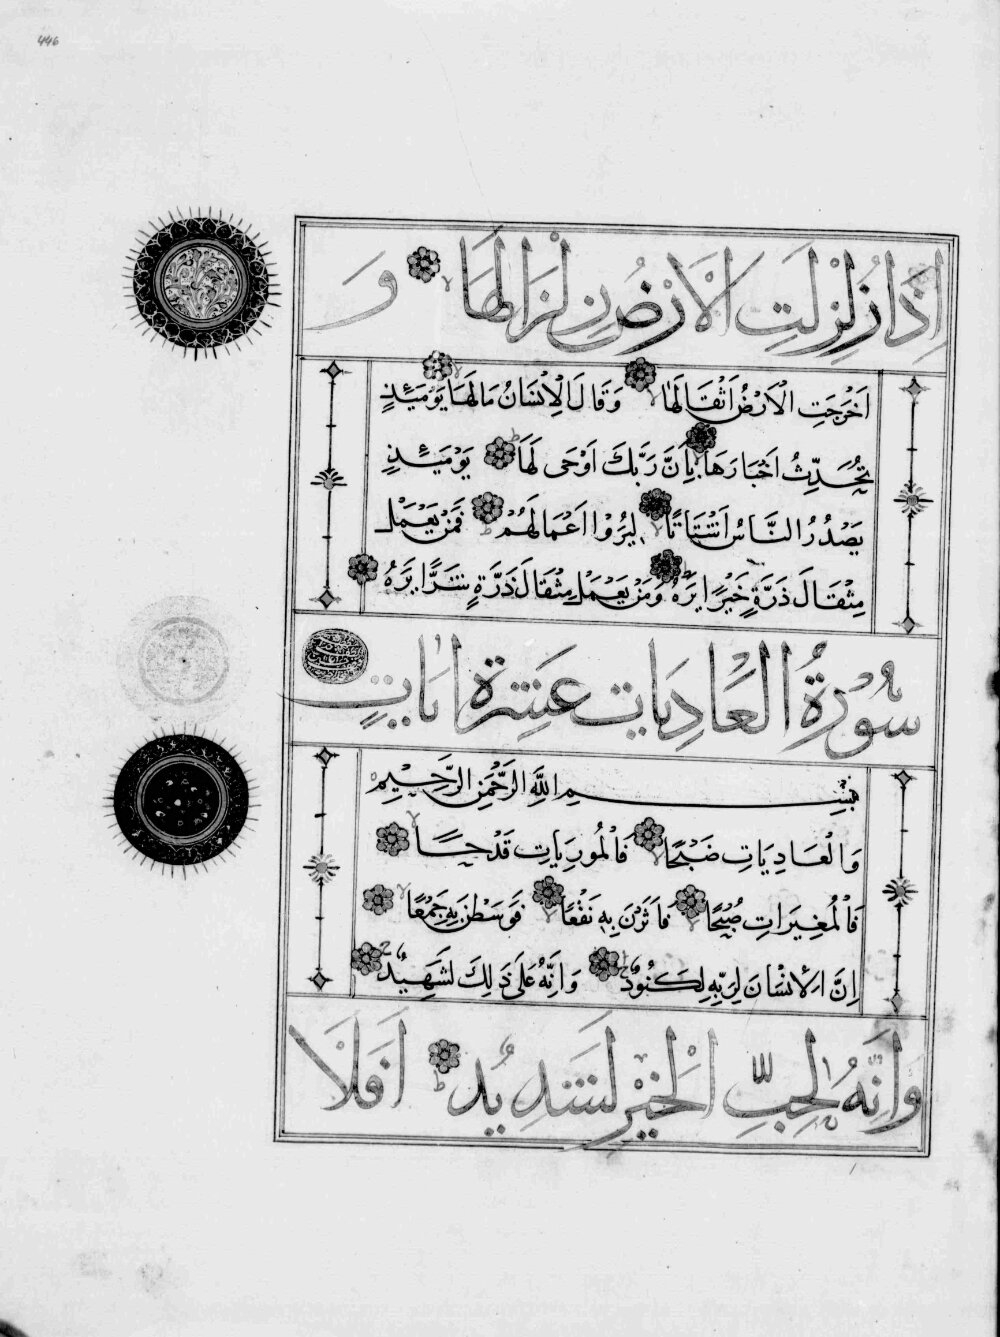 446
اِذَا زُلْزِلَتِ الْاَرْضُ زِلْزَالَهَا وَ
اَخْرَجَتِ الْاَرْضُ اَثْقَالَهَا وَقَالَ الْاِنْسَانُ مَالَهَا يَوْمَئِذٍ
تُحَدِّثُ اَخْبَارَهَا بِاَنَّ رَبَّكَ اَوْحٰى لَهَا يَوْمَئِذٍ
يَصْدُرُ النَّاسُ اَشْتَاتًا لِيُرَوْا اَعْمَالَهُمْ فَمَنْ يَعْمَلْ
مِثْقَالَ ذَرَّةٍ خَيْرًا يَرَهُ وَمَنْ يَعْمَلْ مِثْقَالَ ذَرَّةٍ شَرًّا يَرَهُ
سُورَةُ الْعَادِيَاتِ عَشَرَةُ اٰيَاتٍ
بِسْمِ اللّٰهِ الرَّحْمٰنِ الرَّحِيْمِ
وَالْعَادِيَاتِ ضَبْحًا فَالْمُورِيَاتِ قَدْحًا
فَالْمُغِيْرَاتِ صُبْحًا فَاَثَرْنَ بِهِ نَقْعًا فَوَسَطْنَ بِهِ جَمْعًا
اِنَّ الْاِنْسَانَ لِرَبِّهِ لَكَنُودٌ وَاِنَّهُ عَلٰى ذٰلِكَ لَشَهِيْدٌ
وَاِنَّهُ لِحُبِّ الْخَيْرِ لَشَدِيْدٌ اَفَلَا